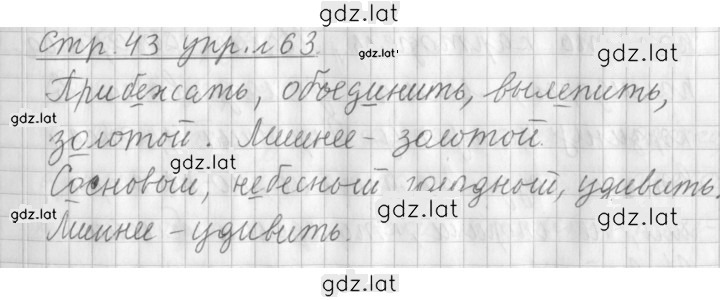 gdz.lat
Стр. 43 упр. 163
gdz.lat
gdz.lat
Прибежать, объединить, вылепить,
gdz.lat
gdz.lat
золотой. Лишнее - золотой.
gdz.lat
Сосновый, небесный удивить.
gdz.lat
gdz.lat
gdz.lat
Лишнее - удивить.
gdz.lat